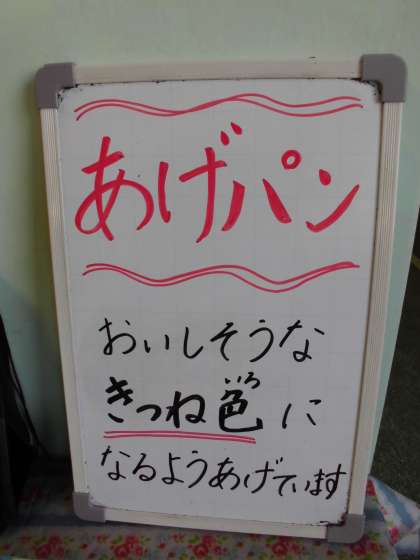 あげパン
おいしそうな
いろ
きつね色に
なるようあげています